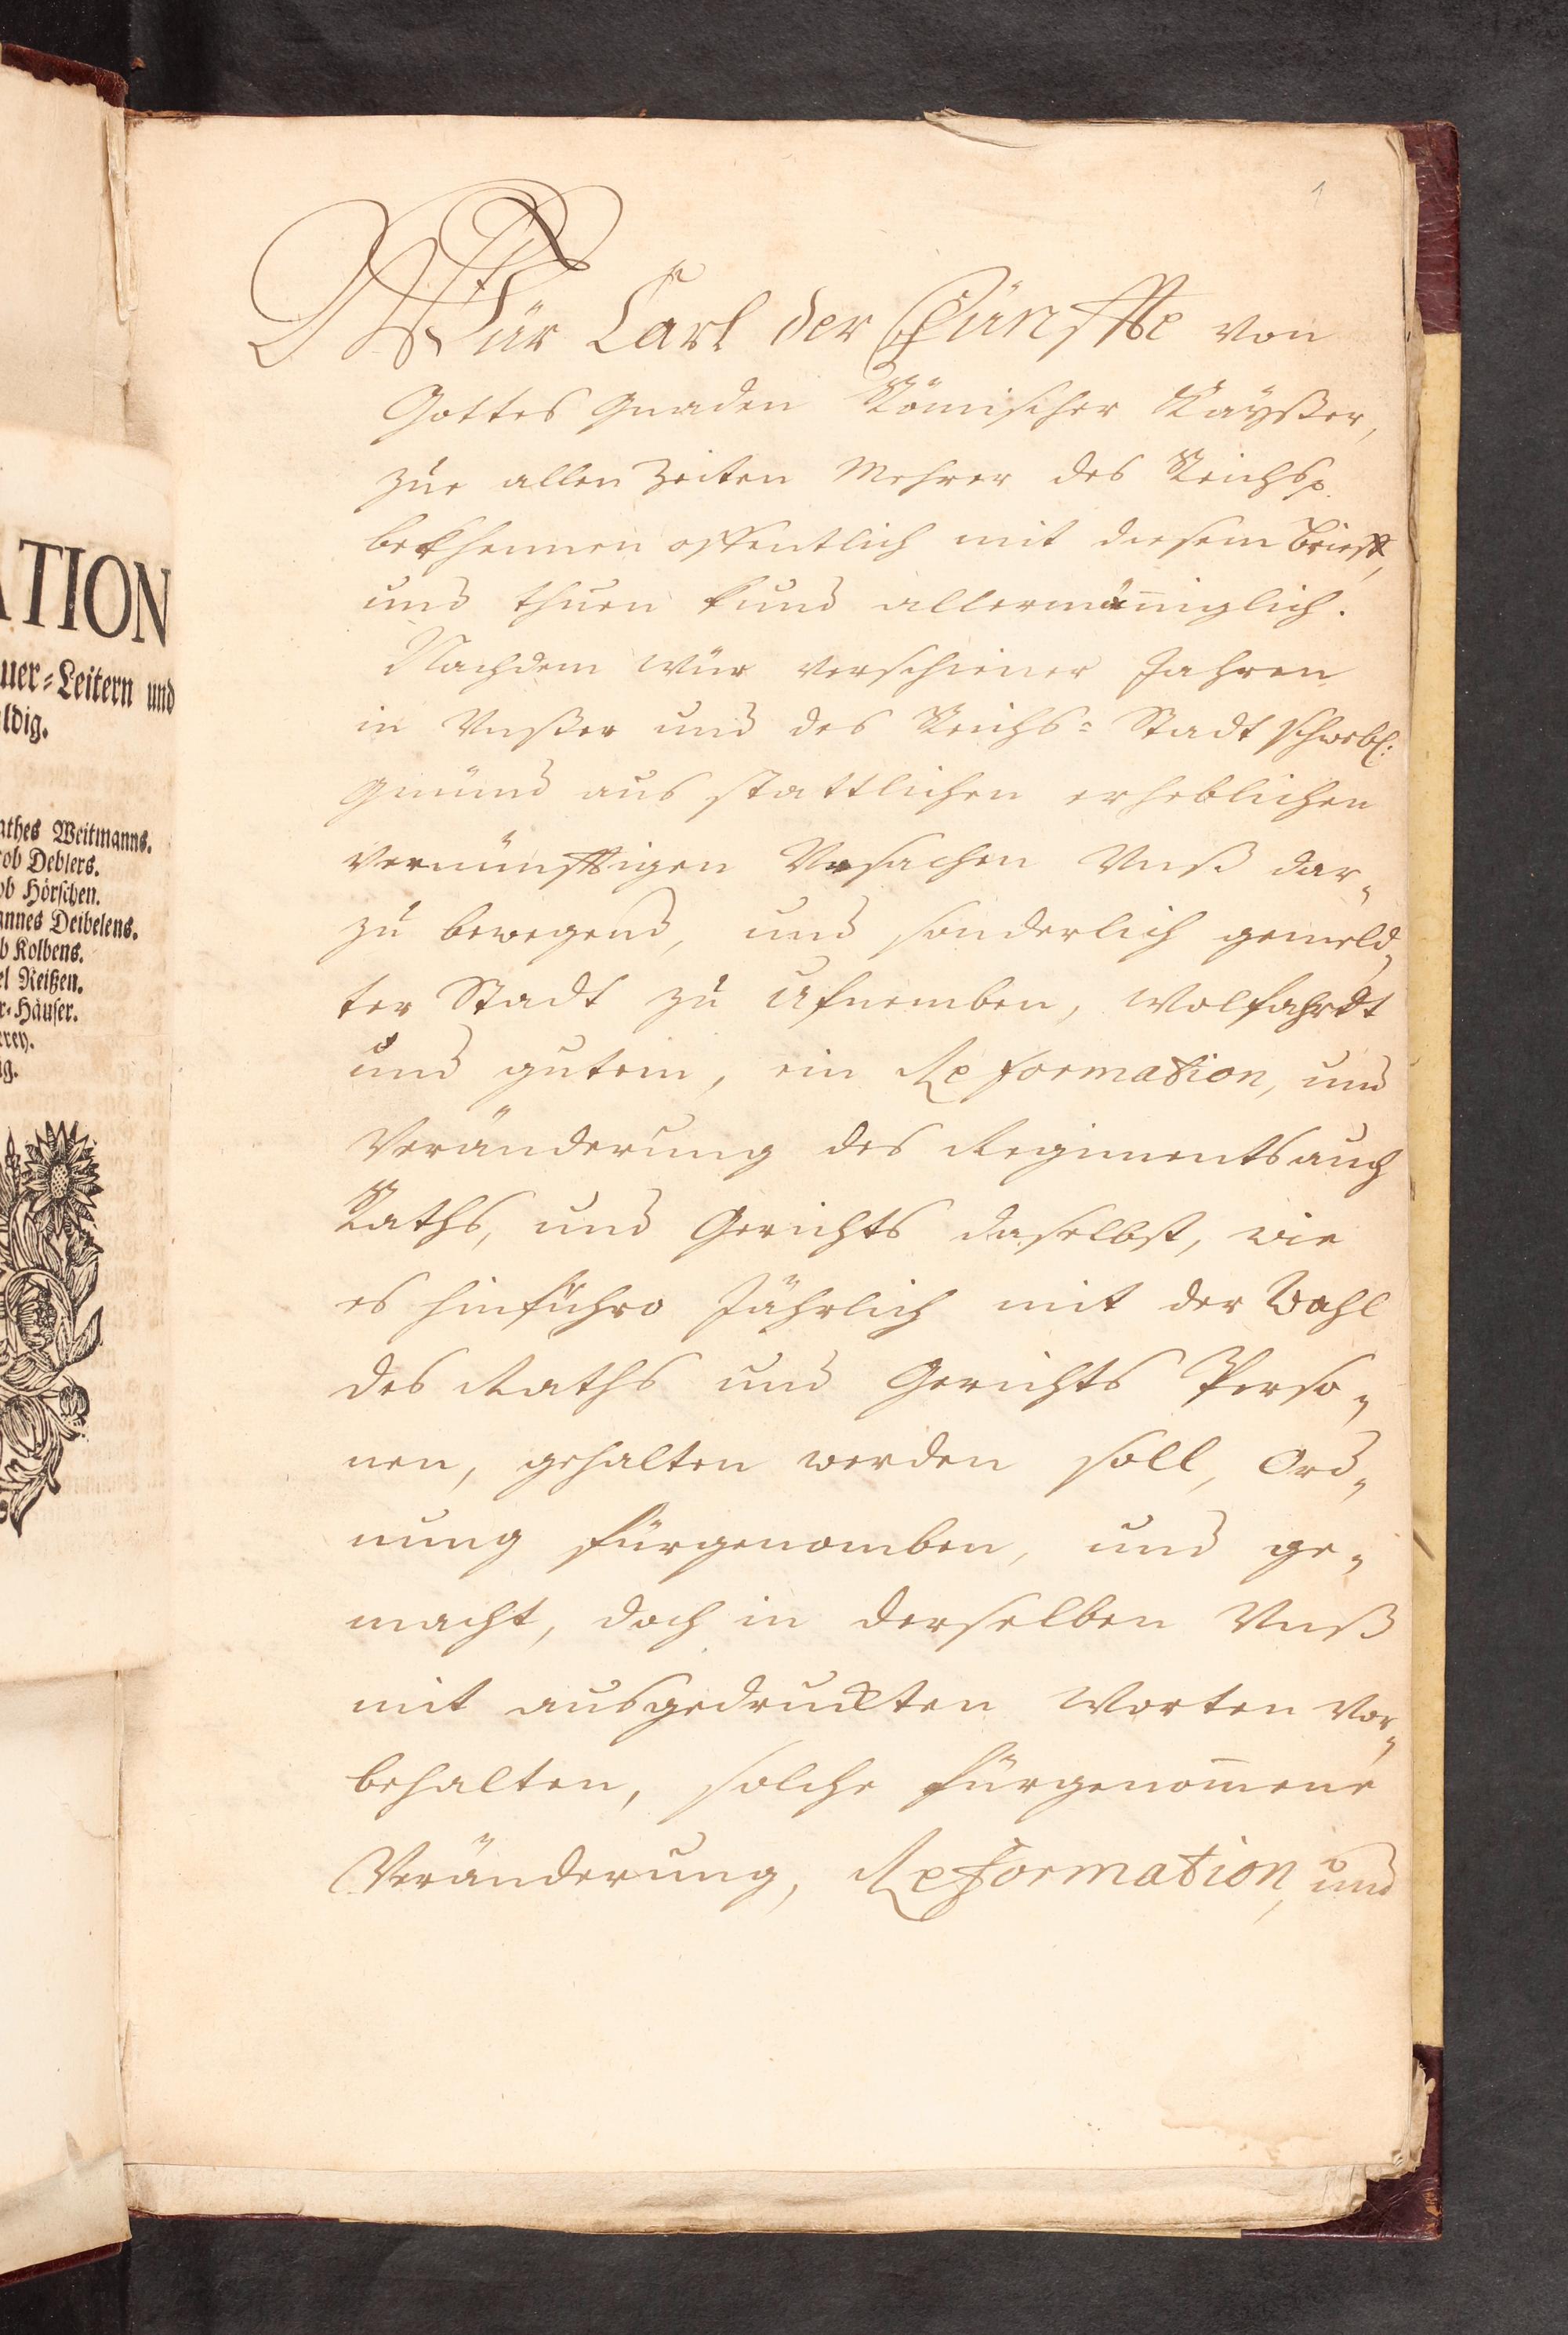 ATION
uer-Leitern und
ldig.
athes Weitmanns.
ob Deblers.
ob Hörschen.
annes Deibelens.
b Kolbens.
el Reißen.
r-Häuser.
erey.
ig.
1
Wür Carl der Fünffte von
Gottes Gnaden Römischer Kayßer,
zue allen Zeiten Mehrer des Reichs p.
bekhennen offentlich mit diesem brieff,
und thuen kund allermäniglich.
Nachdem wür verschiener Jahren
in Vnßer und des Reichs-Stadt schwebl:
gmünd aus stattlichen erheblichen
vernünfftigen Vrsachen Vnß dar-
zu bewegend, und sonderlich gemeld-
ter Stadt zu Ufnemben, Wolfahrdt
und gutem, ein Reformation, und
Veränderung des Regiments auch
Raths, und Gerichts daselbst, wie
es hinführo Jährlich mit der Wahl
des Raths und Gerichts Perso-
nen, gehalten werden soll, Ord-
nung fürgenomben, und ge-
macht, doch in derselben Vnß
mit ausgedruckten Worten vor-
behalten, solche fürgenom̄ene
Veränderung, Reformation, und